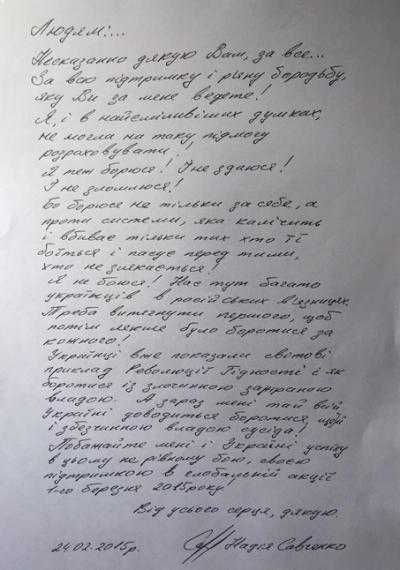 Людям:...
Несказанно дякую Вам, за все...
За всю підтримку і рівну боротьбу,
яку Ви за мене ведете!
Я, і в найсміливіших думках,
не могла на таку підмогу
розраховувати!
Я тет борюся! І не здаюся!
І не зломлюся!
Бо борюся не тільки за себе, а
проти системи, яка калічить
і вбиває тільки тих хто її
боїться і пасує перед тими,
хто не злякається!
Я не боюся! Нас тут багато
українців в російських в'язницях.
Треба витягнути першого, щоб
потім легше було боротися за
кожного!
Українці вже показали світові
приклад Революції Гідності і як
боротися із злочинною
владою. А зараз мені та й всій
Україні доводиться боротися, щодня
і збезчинною владою сусіда!
Побажайте мені і Україні успіху
в цьому не рівному бою, своєю
підтримкою в глобальній акції
1-го березня 2015 року
Від усього серця, дякую.
24.02.2015р. Надія Савченко